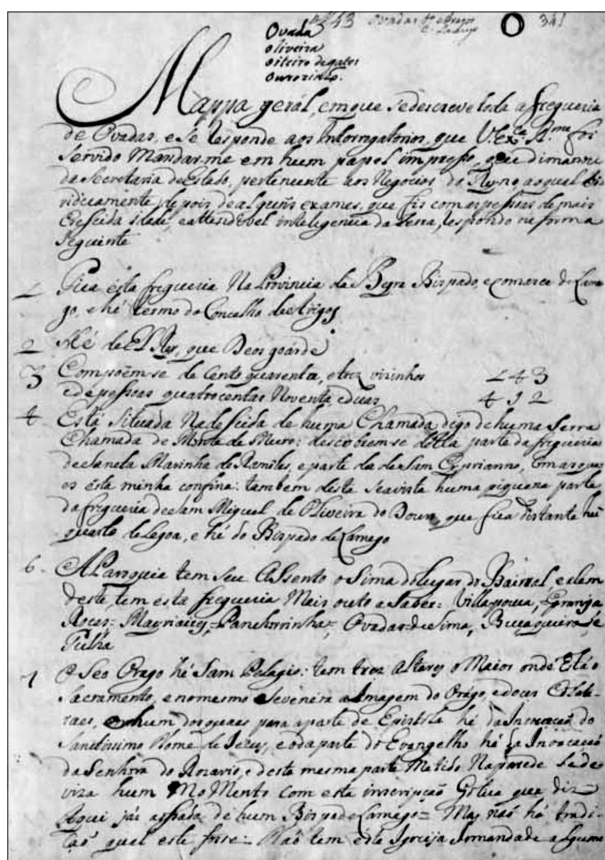 43 Ovadas
341
Ovada
Oliveira
Oiteiro de gatos
Ourozinho.
Mappa geral, em que se descreve toda a freguezia
de Ovadas, e se responde aos Interrogatorios, que V. Ex.ca R.ma foi
servido Mandar-me em hum papel impresso, que dimanou
da Secretaria de Estado, pertencente aos Negocios do Reyno ao qual
depois de alguns exames, que fis com as pessoas de mais
crescida idade, e attendivel inteligencia da terra, respondo na forma
seguinte
1 Fica esta freguezia Na Provincia da Beyra Bispado, e comarca de Lame
go, e hé termo do Concelho de Aregos
2 Hé de El Rey, que Deos goarde
3 Compoem-se de cento quarenta, e trez vizinhos 143
e de pessoas quatrocentas Noventa e duas 492
4 Está situada Na descida de huma Chamada digo de huma Serra
Chamada de Monte de Muro: descobrem-se della parte da freguezia
de Santa Marinha de Ramires, e parte da de Sam Cyprianno, com as quaes
esta minha confina: tambem deste se avista huma piquena parte
da freguezia de Sam Miguel de Oliveira do Douro, que fica distante hum
quarto de Legoa, e hé do Bispado de Lamego
6 A Parroquia tem seu Assento o Sima do lugar do Bairral, e alem
deste, tem esta freguezia Mais outo a Saber: Villa nova, Granja
Rocas: Panchorrinha, Ovadas de sima, e
Tulha
7 O Seo Orago hé Sam Pelagio: tem trez altares o Maior onde está o
Sacramento, e no mesmo se venera a Imagem do Orago, e dous Colate-
raes, hum dos quaes para a parte da Epistola hé da Invocação do
Santissimo Nome de Jezus, e o da parte do Evangelho hé da Invocação
da Senhora do Rozario, e desta mesma parte Metido Na parede se de
viza hum Momento com esta inscripção Gotica que diz
Aqui jás de hum Bispo de Lamego = Mas não há tradi-
ção qual este fosse = Não tem esta Igreja Irmandade alguma